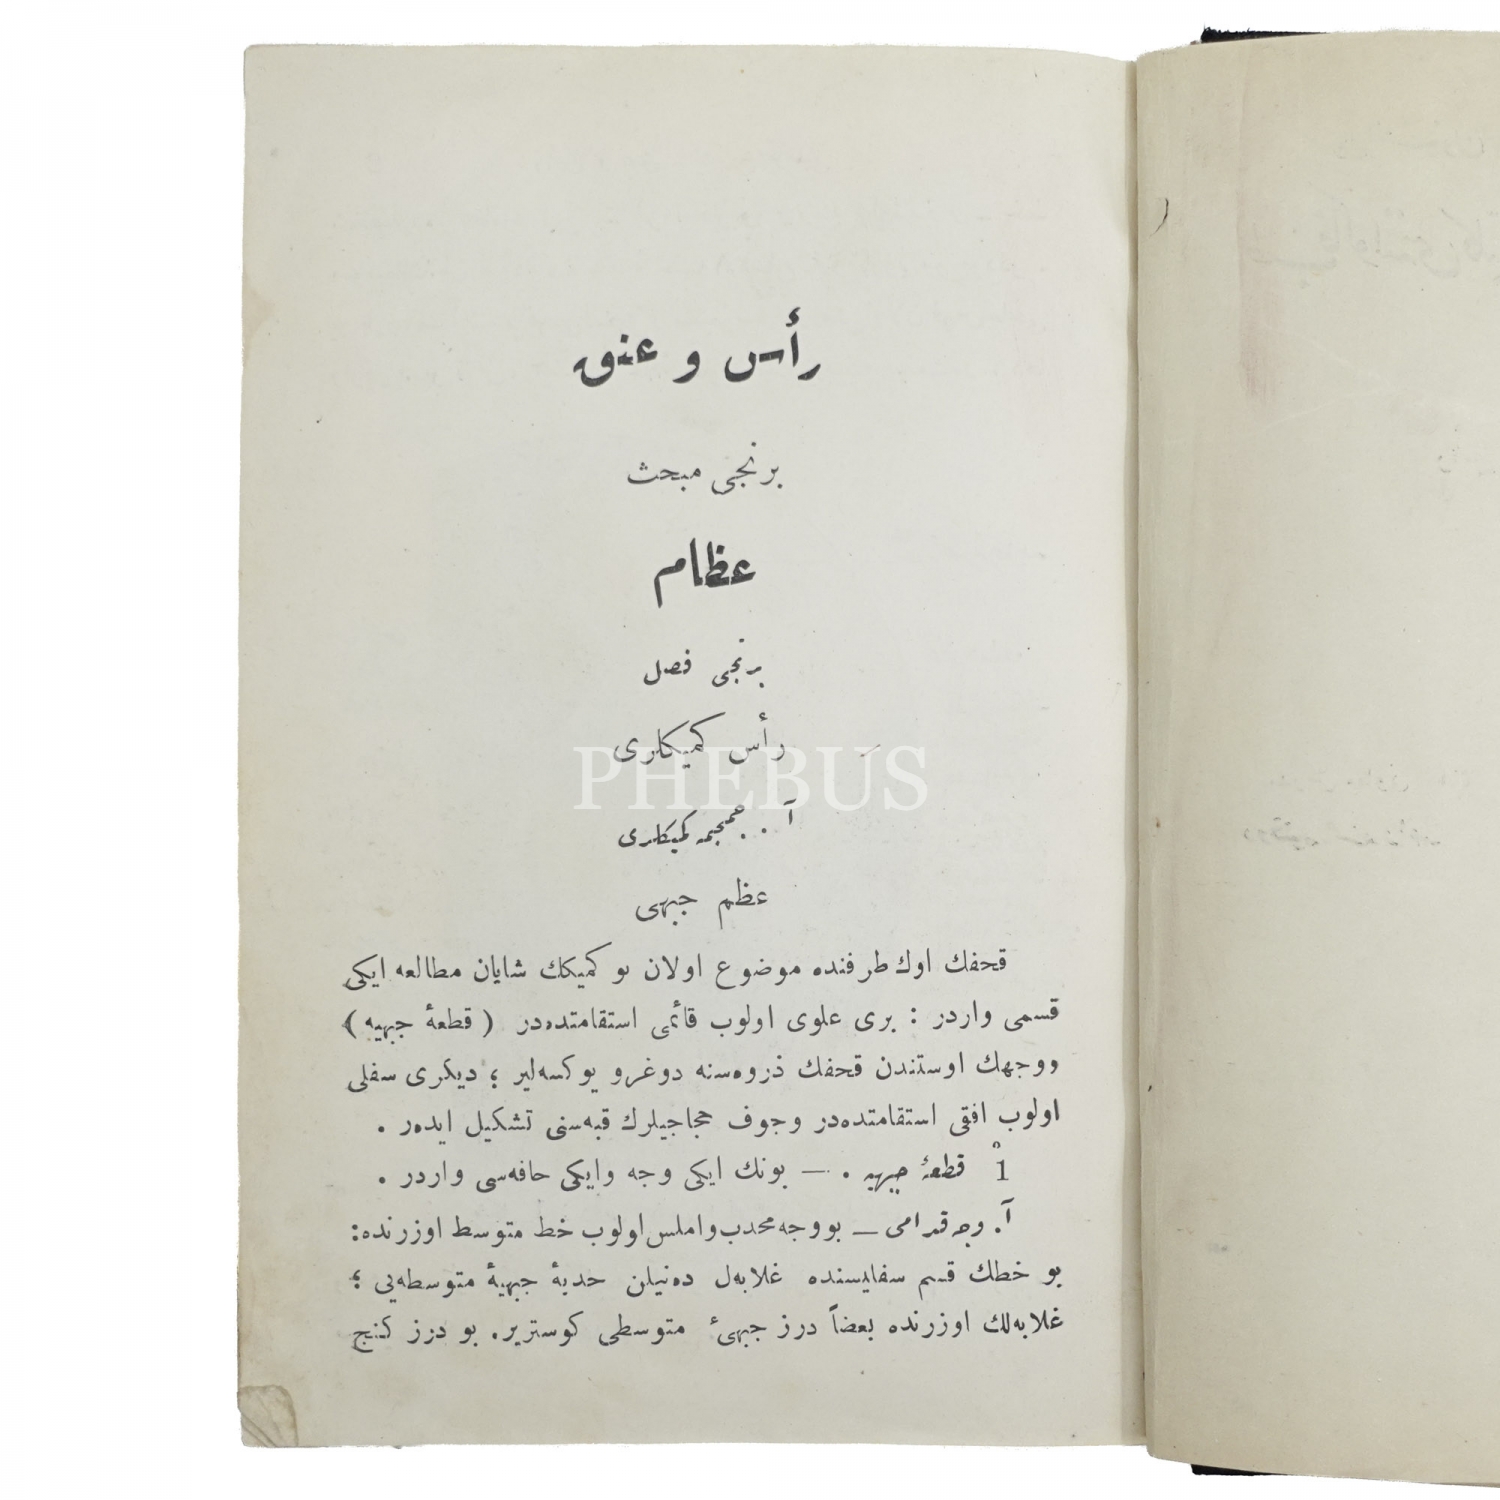 رأس و عنق
برنجی مبحث
عظام
برنجی فصل
رأس كمیكلری
PHEBUS
آ . . جمجمه كمیكلری
عظم جبهی
قحفك اوك طرفنده موضوع اولان بو كمیكك شایان مطالعه ایكی
قسمی واردر : بری علوی اولوب قائمی استقامتده‌در ( قطعۀ جبهیه )
ووجهك اوستندن قحفك ذروه‌سنه دوغرو یوكسه‌لیر ؛ دیكری سفلی
اولوب افقی استقامتده‌در وجوف حجاجیلرك قبه‌سنی تشكیل ایده‌ر .
1 قطعۀ جبهیه . — بونك ایكی وجه وایكی حافه‌سی واردر .
آ. وجه قدامی — بو وجه محدب و املس اولوب خط متوسط اوزرنده :
بو خطك قسم سفلیسنده غلابه‌ل ده‌نیلن حدبۀ جبهیۀ متوسطه‌یی ؛
غلابه‌لك اوزرنده بعضاً درز جبهیٔ متوسطی كوستریر. بو درز كنج